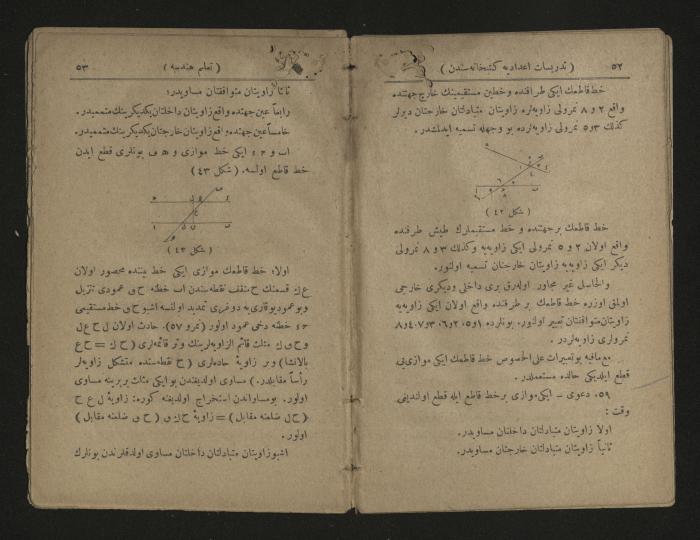 ٥٢
( تدريسات اعداديه كتبخانه‌سندن )
خط قاطعك ايكى طرفنده وخطين مستقيمينك خارج جهتنده
واقع ٢ و ٨ نمرولى زاويه‌لره زاويتان متبادلتان خارجتان ديرلر
كذلك ٣ و ٥ نمرولى زاويه‌لرده بو وجهله تسميه ايدلمشدر .
( شكل ٤٢ )
خط قاطعك بر جهتنده و خط مستقيملرك طيش طرفنده
واقع اولان ٢ و ٥ نمرولى ايكى زاويه‌يه وكذلك ٣ و ٨ نمرولى
ديكر ايكى زاويه‌يه زاويتان خارجتان تسميه اولنور.
والحاصل غير مجاور اوله‌رق برى داخلى وديكرى خارجى
اولمق اوزره خط قاطعك بر طرفنده واقع اولان ايكى زاويه‌يه
زاويتان متوافقتان تعبير اولنور. بونلرده ١ و ٥، ٢ و ٦، ٣ و ٧، ٤ و ٨
نمرولرى زاويه‌لردر .
مع مافيه بو تعبيرات على الخصوص خط قاطعك ايكى موازى‌يى
قطع ايلديكى حالده مستعملدر .
٥٩. دعوى ـ ايكى موازى بر خط قاطع ايله قطع اولنديغى
وقت :
اولا زاويتان متبادلتان داخلتان مساويدر.
ثانياً زاويتان متبادلتان خارجتان مساويدر.
( تعليم هندسه )
٥٣
ثالثاً زاويتان متوافقتان مساويدر؛
رابعاً عين جهتده واقع زاويتان داخلتان يكديكرينك متممیدر.
خامساً عين جهتده واقع زاويتان خارجتان يكديكرينك متممیدر.
ا ب و ح ء ايكى خط موازى و ه ف بونلرى قطع ايدن
خط قاطع اولسه. ( شكل ٤٣ )
( شكل ٤٣ )
اولا؛ خط قاطعك موازى ايكى خط بيننده محصور اولان
قسمنك منتصف نقطه‌سندن ا ب خطنه عمودى تنزيل
وبو عمود يوقارى‌يه دوغرى تمديد اولنسه اشبو خط مستقيمى
ح ء خطنه دخى عمود اولور (نمرو ٥٧). حادث اولان
مثلث قائم الزاويه‌لرينك وتر قائمه‌لرى
بالانشا) وبر زاويهٔ حاده‌لرى ( ح نقطه‌سنده متشكل زاويه‌لر
رأساً مقابلدر. ) مساوى اولديغندن بو ايكى مثلث بربرينه مساوى
اولور. بو مساواتدن استخراج اولديغنه كوره: زاويهٔ ل ع ح
( ح ل ضلعنه مقابل ) = زاويهٔ ح ك ق ( ح ق ضلعنه مقابل )
اولور .
اشبو زاويتان متبادلتان داخلتان مساوى اولدقلرندن بونلرك